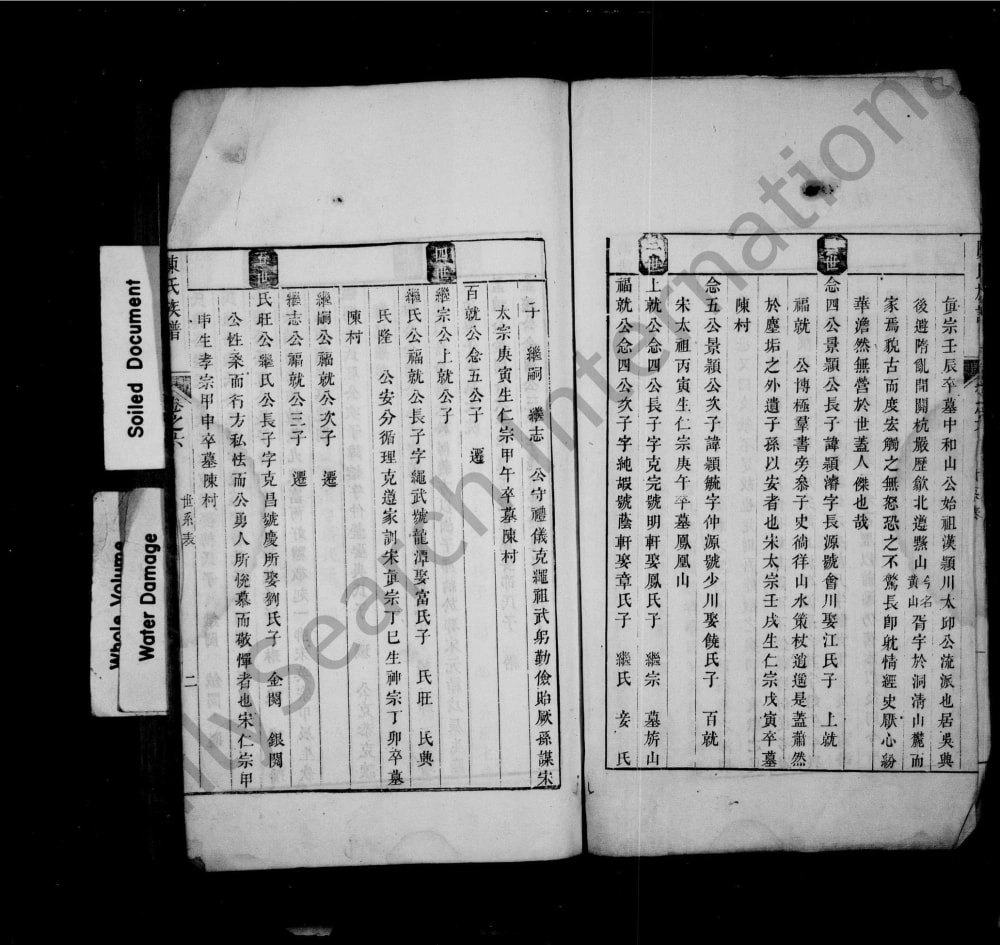 真宗壬辰卒墓中和山公始祖漢穎川太邱公流派也居吳興
後遊隋亂開開杭嚴歷歙北道黟山今名黃山胥宇於洞清山麓而
家焉貌古而度安觸之無怒恐之不驚長卽躭情經史厭心紛
華澹然無營於世蓋人傑也哉
二世
念四公景穎公長子諱穎濬字長源號會川娶江氏子 上就
福就 公博極羣書旁叅子史徜徉山水策杖逍遙是蓋蕭然
於塵垢之外遺子孫以安者也宋太宗壬戌生仁宗戊寅卒墓
陳村
念五公景穎公次子諱穎毓字仲源號少川娶饒氏子 百就
宋太祖丙寅生仁宗庚午卒墓鳳凰山
三世
上就公念四公長子字克完號明軒娶鳳氏子 繼宗 墓旂山
福就公念四公次子字純嘏號蔭軒娶章氏子 繼氏 妾 氏
子 繼嗣 繼志 公守禮儀克繩祖武躬勤儉貽厥孫謀宋
太宗庚寅生仁宗甲午卒墓陳村
百就公念五公子 遷
四世
繼宗公上就公子
繼氏公福就公長子字繩武號龍潭娶富氏子 氏旺 氏典
氏隆 公安分循理克遵家訓宋真宗丁巳生神宗丁卯卒墓
陳村
繼嗣公福就公次子 遷
繼志公福就公三子 遷
五世
氏旺公繼氏公長子字克昌號慶所娶劉氏子 金閔 銀閔
公性柔而行方私怯而公勇人所悅慕而敬憚者也宋仁宗甲
申生孝宗甲申卒墓陳村
陳氏族譜 卷之六 世系表 二
Soiled Document
Whole Volume
Water Damage
FamilySearch International